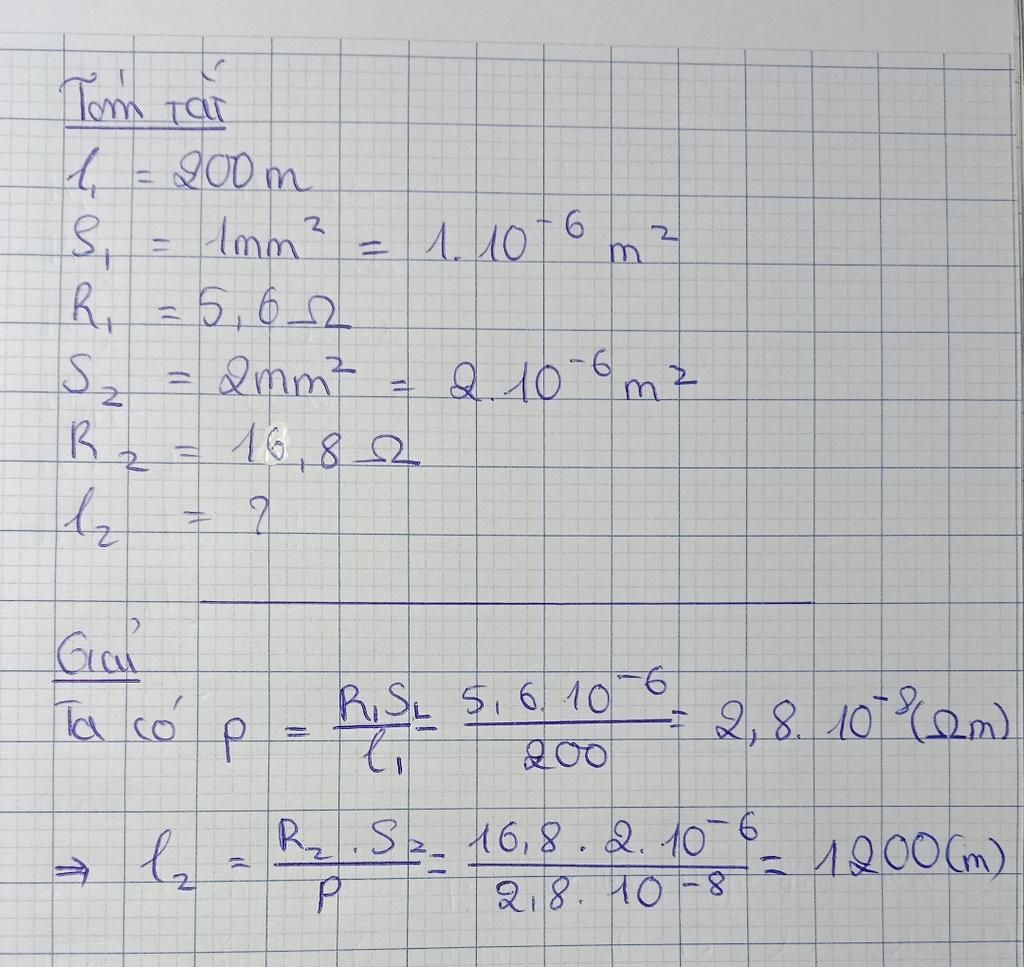 Tóm tắt
l₁ = 200 m
S₁ = 1mm² = 1.10⁻⁶ m²
R₁ = 5,6 Ω
S₂ = 2mm² = 2.10⁻⁶ m²
R₂ = 16,8 Ω
l₂ = ?
Giải
Ta có p = R₁S₁/l₁ = 5,6.10⁻⁶/200 = 2,8.10⁻⁸(Ωm)
⇒ l₂ = R₂.S₂/p = 16,8.2.10⁻⁶/2,8.10⁻⁸ = 1200(m)